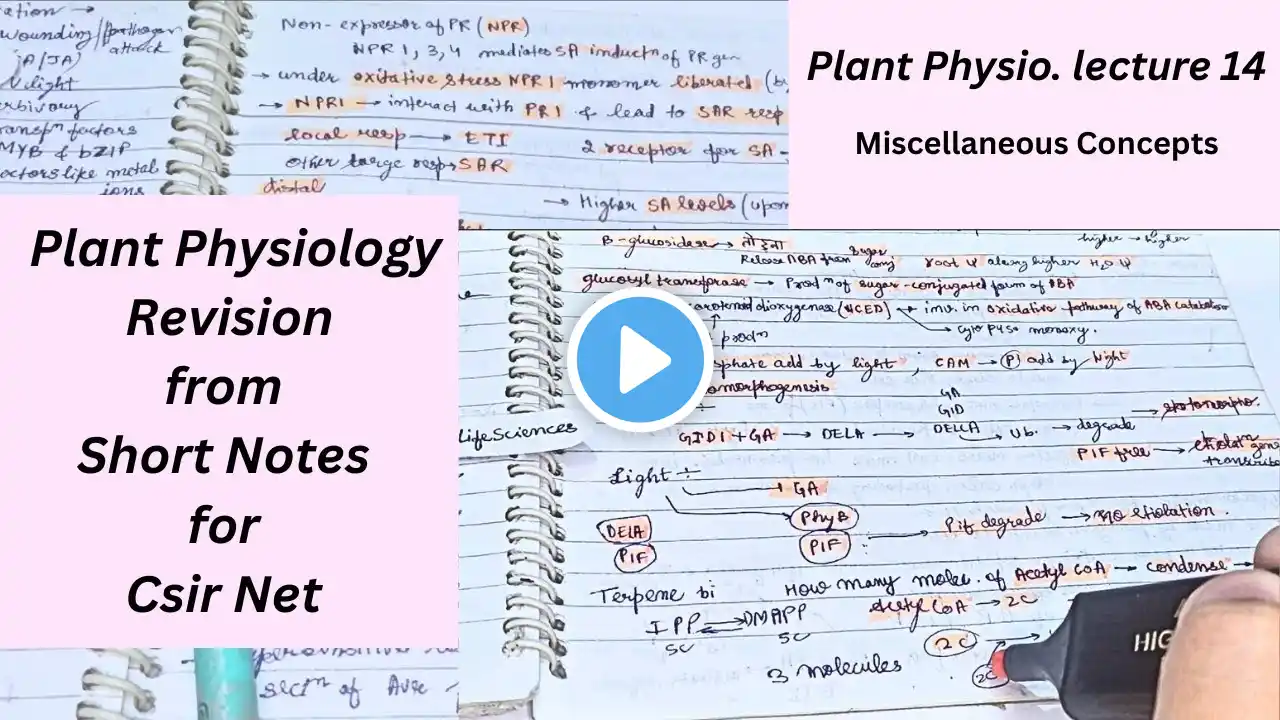 ation →
wounding/pathogen
attack
JA/JA)
light
erbivory
transpⁿ factors
MYB & bZIP
actors like metal
ions
Non-expressor of PR (NPR)
NPR 1, 3, 4 mediates SA inductⁿ of PR gen
→ under oxitative stress NPR1 monomer liberated (by
→ NPR1 → interact with PR1 & lead to SAR resp
local resp → ETI
2 receptor for SA -
other large resp SAR
distal
→ Higher SA levels (upon
Plant Physio. lecture 14
Miscellaneous Concepts
Plant Physiology
Revision
from
Short Notes
for
Csir Net
B-glucosidase → तोड़ना
higher → higher
Release ABA from sugar conj
root ψ along higher H₂O ψ
glucosyl transferase → Prodⁿ of sugar-conjugated form of ABA
arotenoid dioxygenase (NCED) → inv. in oxidative pathway of ABA catabolism
prodⁿ
→ Cyto P450 monoxy.
sphate add by light ; CAM → Pi add by Night
omorphogenesis
LifeSciences
GID1 + GA → DELA →
GA
GID
DELLA → Ub. → degrade
→ skotomorpho.
PIF free → etiolatⁿ gene
transcribe
Light ÷
+ GA
DELA
PIF
PhyB
PIF
Pif degrade → no etiolation.
Terpene bi
How many molec. of Acetyl CoA → condense →
IPP ⇌ DMAPP
5C 5C
Acetyl CoA → 2C
2C
3 molecules
2C
HIG
sectⁿ of Avr